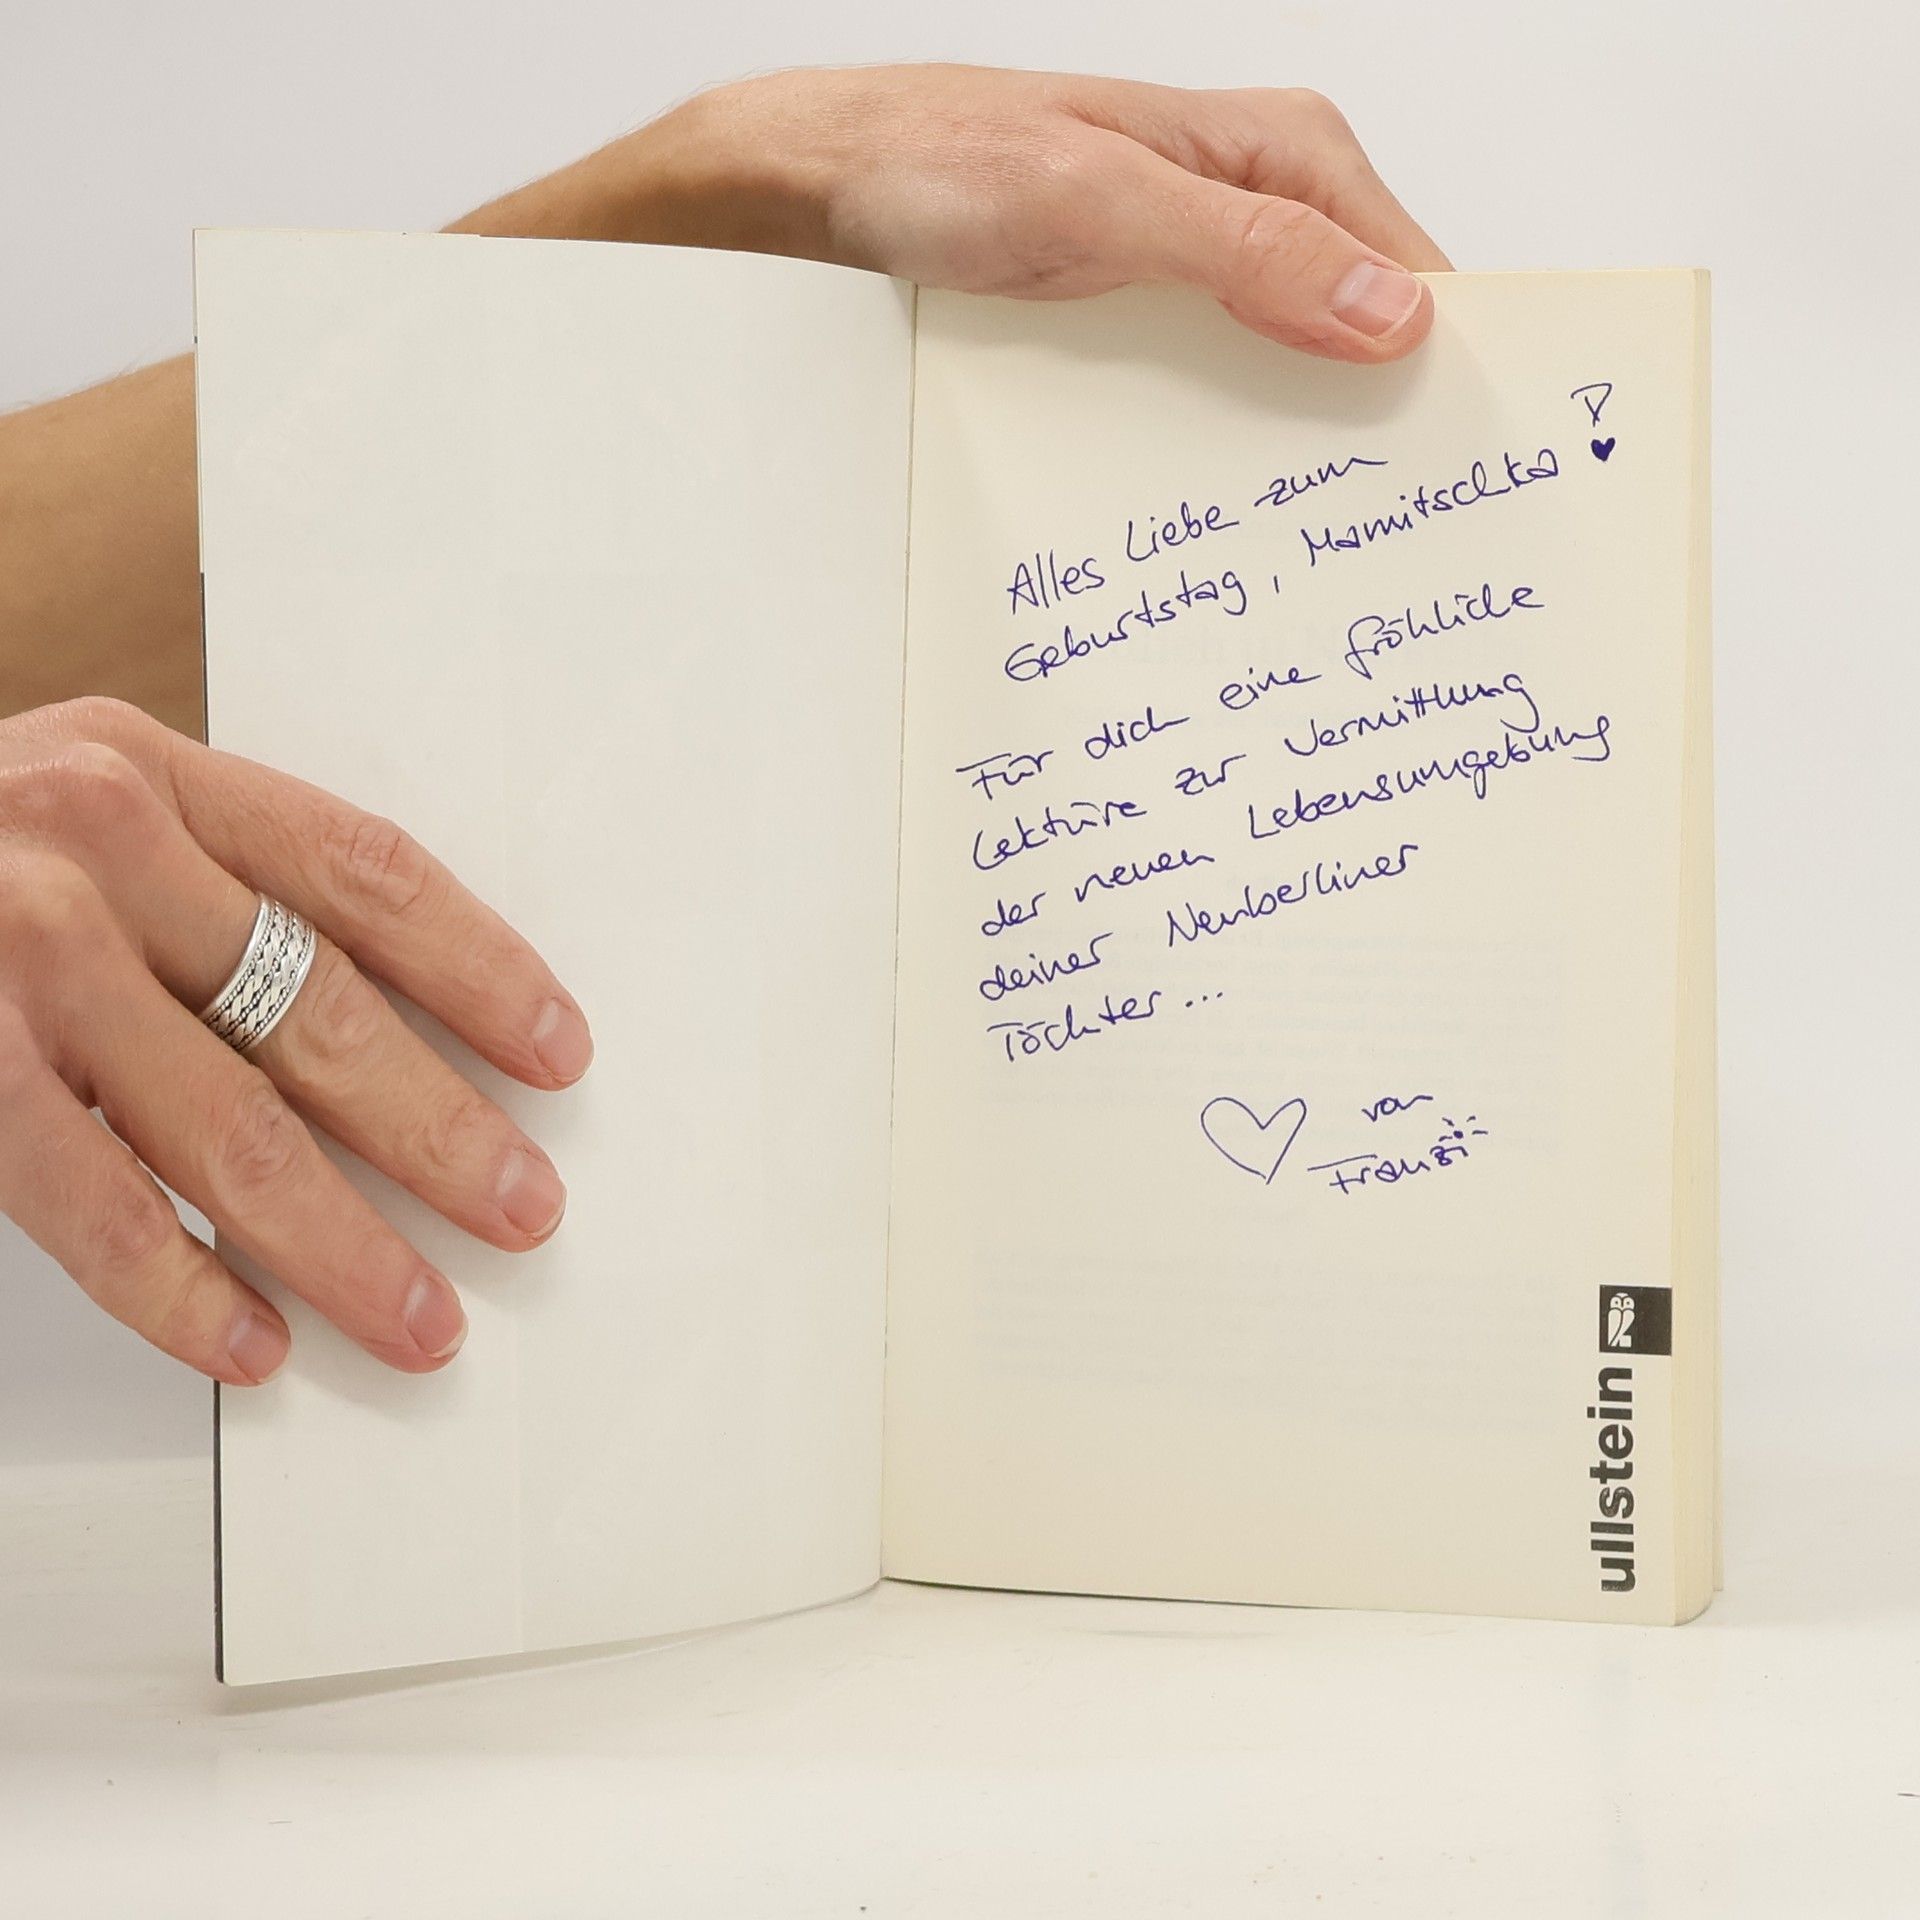 Alles Liebe zum
Geburtstag, Mamitschka!
Für dich eine fröhliche
Lektüre zur Vermittlung
der neuen Lebensumgebung
deiner Neuberliner
Töchter ...
von
Franzi
ullstein